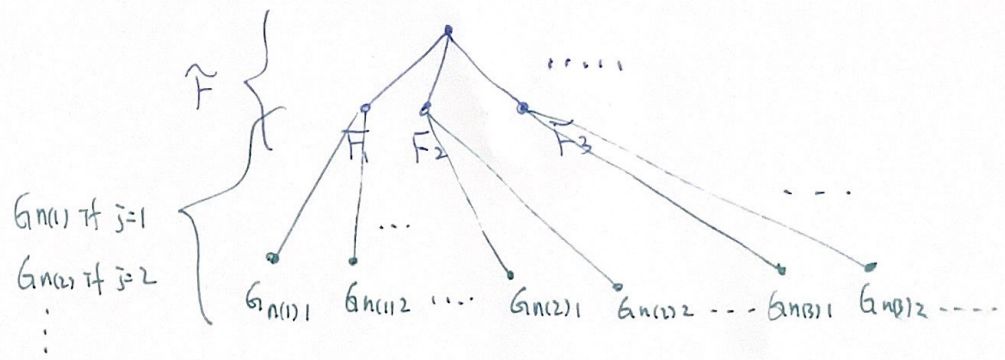 F̃
F₁ F₂ F₃
Gn(1) if j=1
Gn(2) if j=2
Gn(1)1 Gn(1)2 .... Gn(2)1 Gn(2)2 ---- Gn(3)1 Gn(3)2 -----